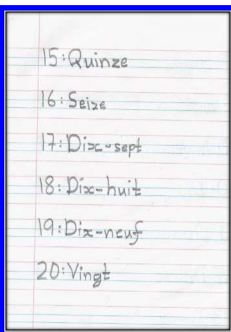 15:Quinze
16:Seize
17:Dix-sept
18:Dix-huit
19:Dix-neuf
20:Vingt